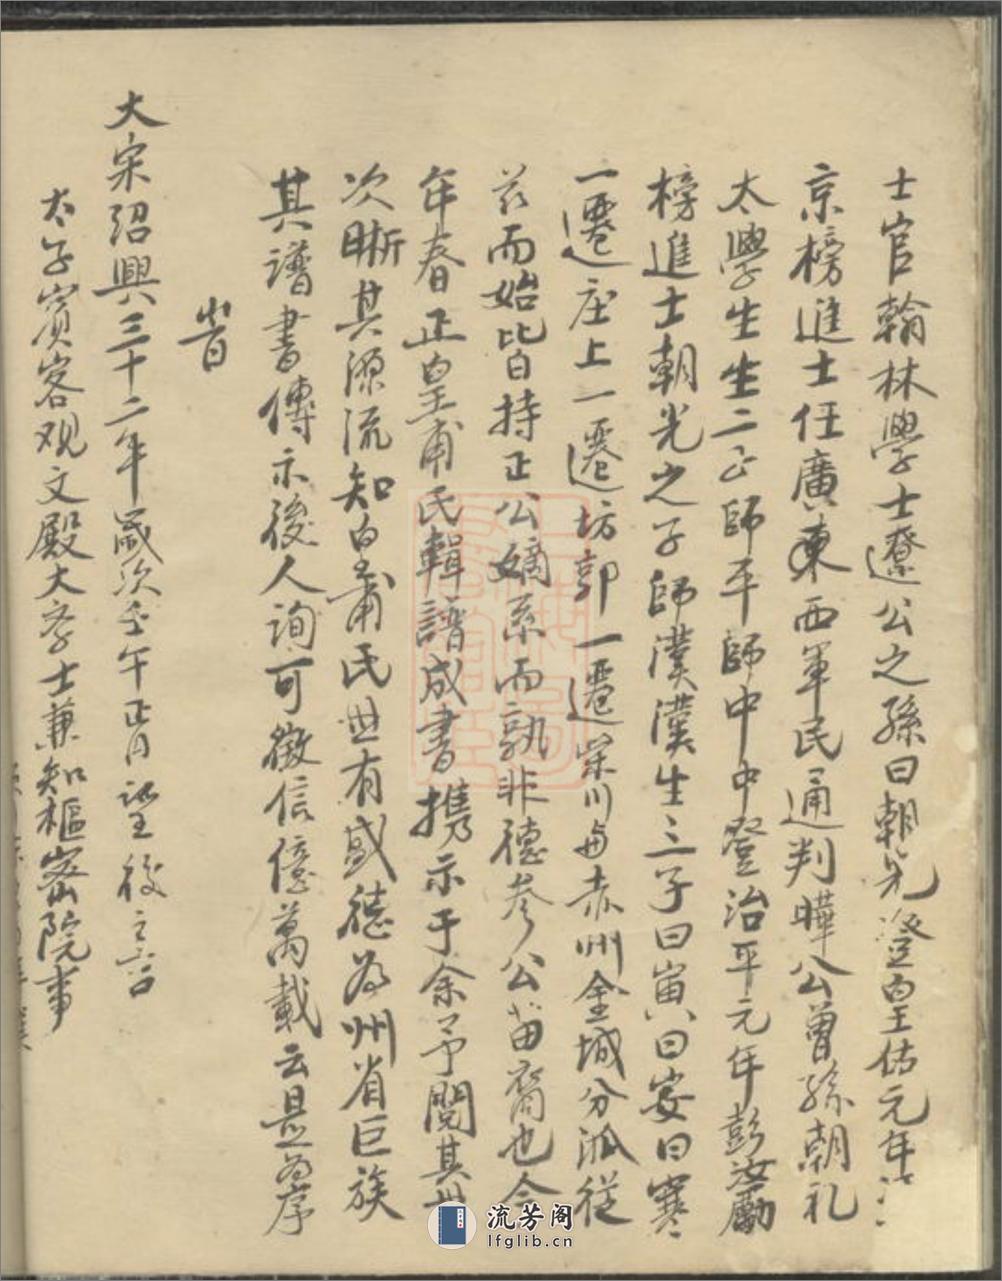 士官翰林學士遼公之孫曰朝光登皇佑元年
京榜進士任廣東西軍民通判曄公曾孫朝礼
太學生生二子師平師中中登治平元年彭汝勵
榜進士朝光之子師漢漢生三子曰寅曰安曰寒
一遷庄上一遷坊郭一遷 川 赤州金城分派從
茲而始皆持正公嫡系而孰非德參公苗裔也今
年春正皇甫民輯譜成書携示于余予閱其世
次晰其源流知皇甫氏世有盛德为州省巨族
其譜書傳示後人詢可徵信億萬載云是为序
峕
大宋绍興三十二年歲次壬午正月望後之吉
太子賓客观文殿大学士兼知樞密院事
流芳阁
lfglib.cn